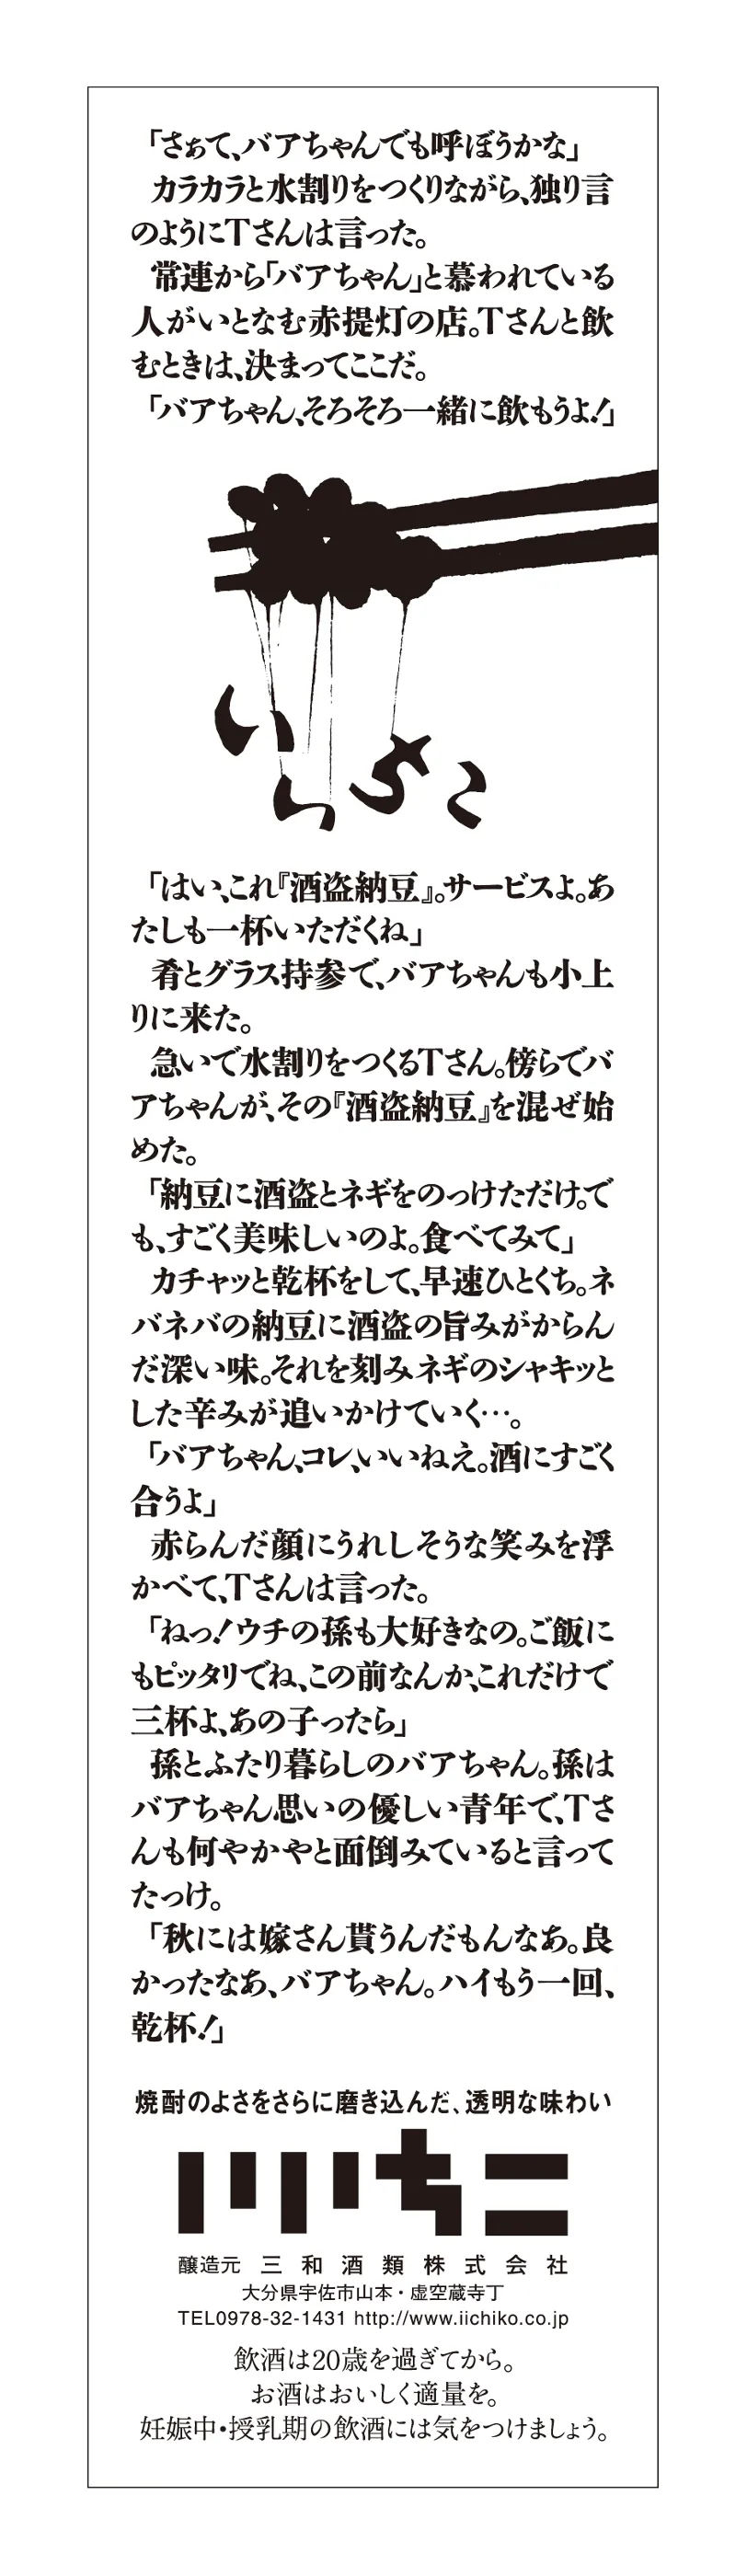 「さぁて、バアちゃんでも呼ぼうかな」
カラカラと水割りをつくりながら、独り言
のようにTさんは言った。
常連から「バアちゃん」と慕われている
人がいとなむ赤提灯の店。Tさんと飲
むときは、決まってここだ。
「バアちゃん、そろそろ一緒に飲もうよ!」
いいちこ
「はい、これ『酒盗納豆』。サービスよ。あ
たしも一杯いただくね」
肴とグラス持参で、バアちゃんも小上
りに来た。
急いで水割りをつくるTさん。傍らでバ
アちゃんが、その『酒盗納豆』を混ぜ始
めた。
「納豆に酒盗とネギをのっけただけ。で
も、すごく美味しいのよ。食べてみて」
カチャッと乾杯をして、早速ひとくち。ネ
バネバの納豆に酒盗の旨みがからん
だ深い味。それを刻みネギのシャキッと
した辛みが追いかけていく…。
「バアちゃん、コレ、いいねえ。酒にすごく
合うよ」
赤らんだ顔にうれしそうな笑みを浮
かべて、Tさんは言った。
「ねっ!ウチの孫も大好きなの。ご飯に
もピッタリでね、この前なんか、これだけで
三杯よ、あの子ったら」
孫とふたり暮らしのバアちゃん。孫は
バアちゃん思いの優しい青年で、Tさ
んも何やかやと面倒みていると言って
たっけ。
「秋には嫁さん貰うんだもんなあ。良
かったなあ、バアちゃん。ハイもう一回、
乾杯!」
焼酎のよさをさらに磨き込んだ、透明な味わい
いいちこ
醸造元 三和酒類株式会社
大分県宇佐市山本・虚空蔵寺丁
TEL0978-32-1431 http://www.iichiko.co.jp
飲酒は20歳を過ぎてから。
お酒はおいしく適量を。
妊娠中・授乳期の飲酒には気をつけましょう。